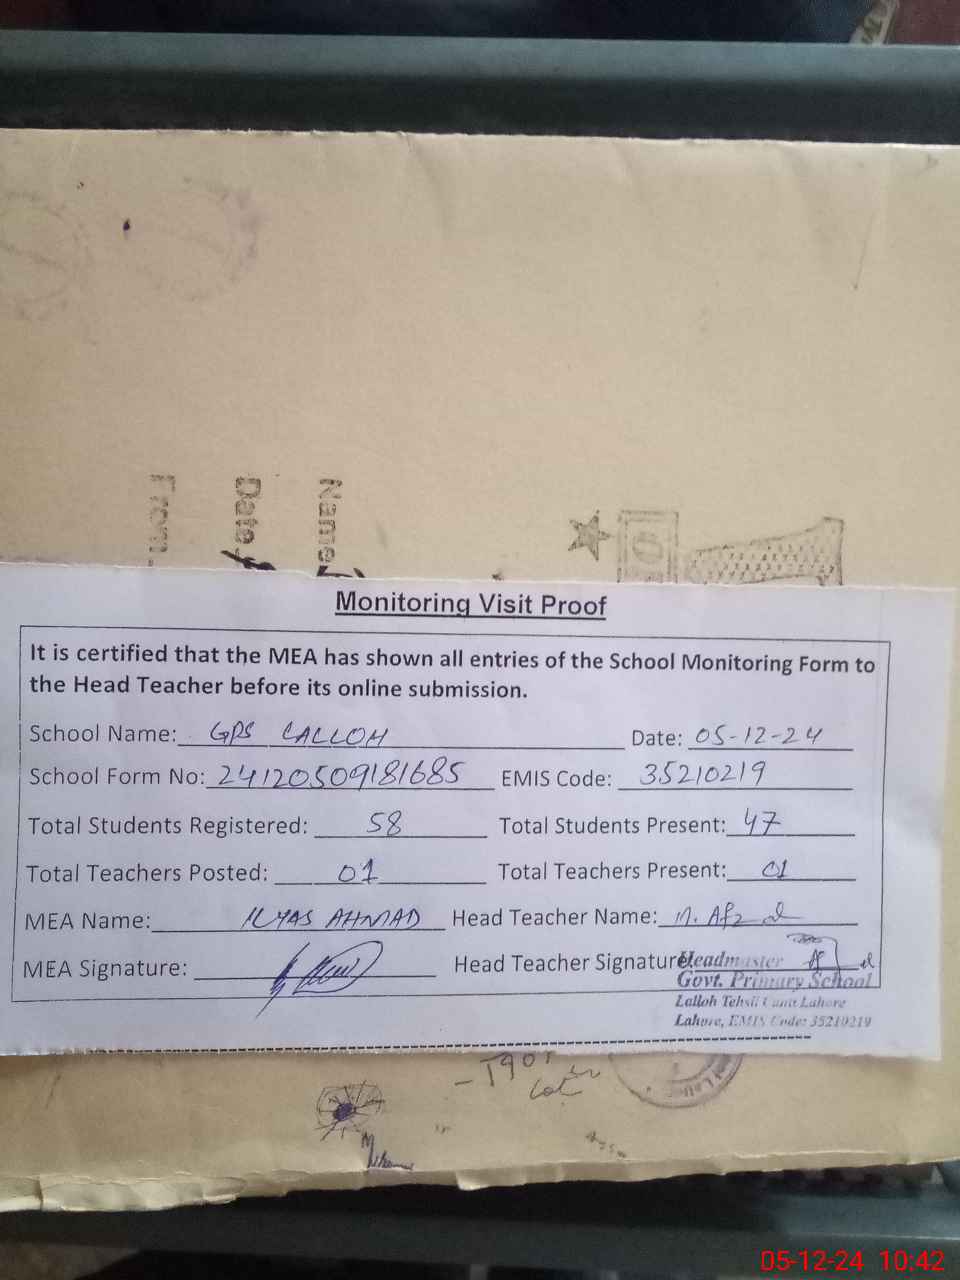 From
Date
Name
Monitoring Visit Proof
It is certified that the MEA has shown all entries of the School Monitoring Form to
the Head Teacher before its online submission.
School Name: GPS LALLOH Date: 05-12-24
School Form No: 24120509181685 EMIS Code: 35210219
Total Students Registered: 58 Total Students Present: 47
Total Teachers Posted: 01 Total Teachers Present: 01
MEA Name: ILYAS AHMAD Head Teacher Name: M. Afzal
MEA Signature: Head Teacher Signature:
Headmaster
Govt. Primary School
Lalloh Tehsil Cantt Lahore
Lahore, EMIS Code: 35210219
05-12-24 10:42